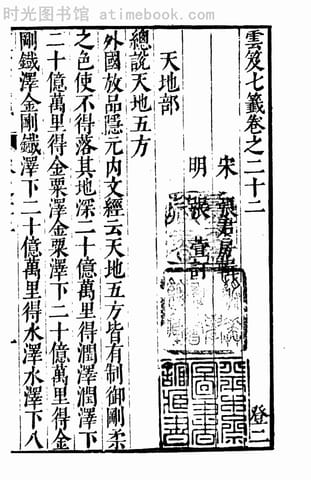 时光图书馆 - atimebook.com
雲笈七籤卷之二十二
登二
宋 張君房
明 張萱訂
天地部
總說天地五方
外國放品隱元內文經云天地五方皆有制御剛柔
之色使不得落其地深二十億萬里得潤澤潤澤下
二十億萬里得金粟澤金粟澤下二十億萬里得金
剛鐵澤金剛鐵澤下二十億萬里得水澤水澤下八